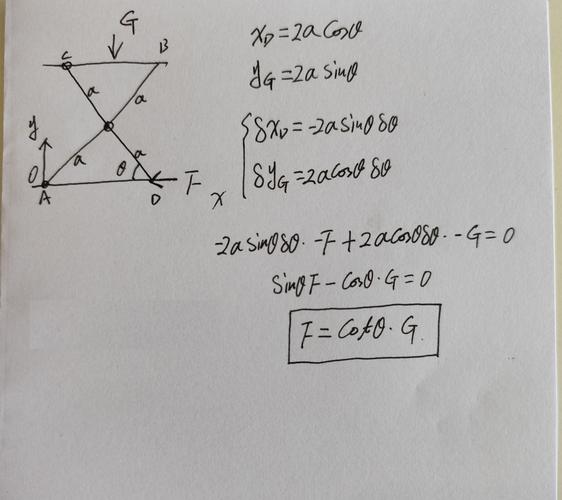 G
C B
a a
y
a a
O θ F
A D x
x_D = 2a cosθ
y_G = 2a sinθ
{ δx_D = -2a sinθ δθ
δy_G = 2a cosθ δθ
-2a sinθ δθ · -F + 2a cosθ δθ · -G = 0
sinθ F - cosθ · G = 0
F = cotθ · G